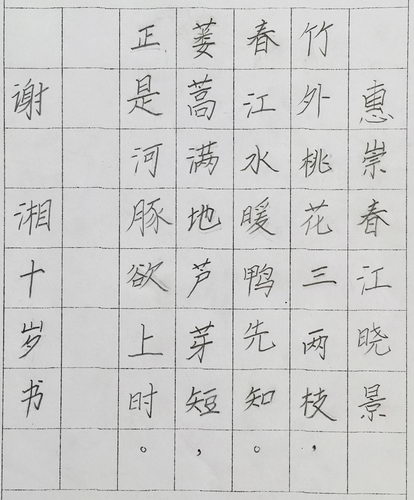 惠崇春江晓景
竹外桃花三两枝，
春江水暖鸭先知。
蒌蒿满地芦芽短，
正是河豚欲上时。
谢湘十岁书